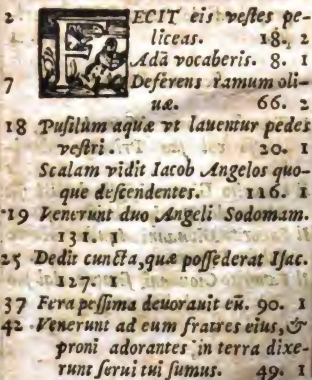 2 FECIT eis vestes pe-
liceas. 18. 2
Adã vocaberis. 8. 1
7 Deferens ramum oli-
uæ. 66. 2
18 Pusilum aquæ vt lauentur pedes
vestri. 20. 1
Scalam vidit Iacob Angelos quo-
que descendentes. 116. 1
19 Venerunt duo Angeli Sodomam.
131. 1
25 Dedit cuncta, quæ possederat Isac.
127. 1
37 Fera pessima deuorauit eũ. 90. 1
42 Venerunt ad eum fratres eius, &
proni adorantes in terra dixe-
runt serui tui sumus. 49. 1